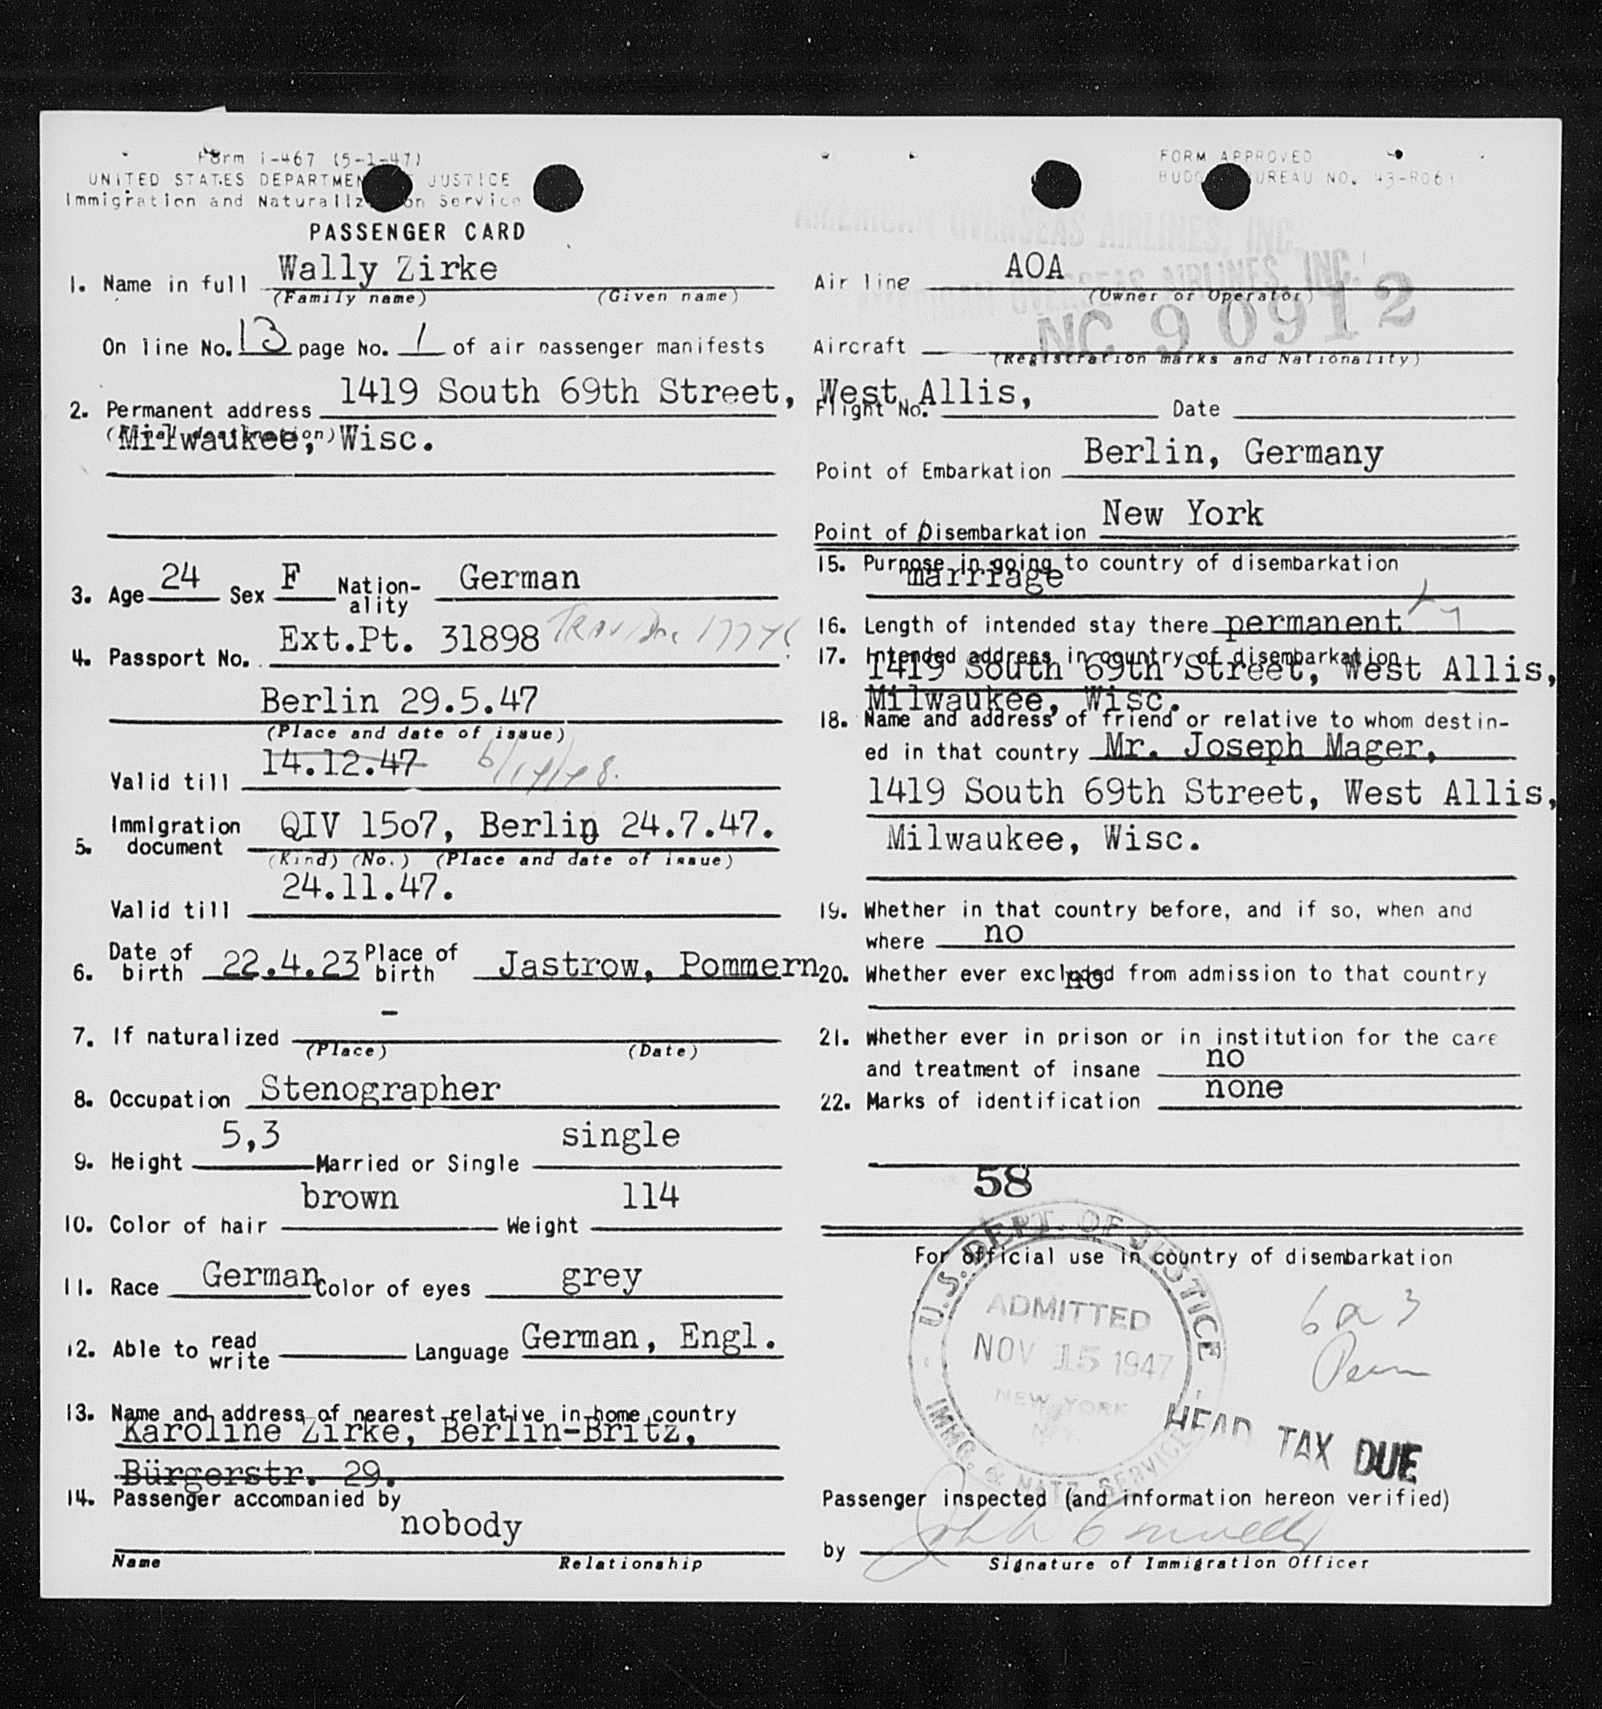 Form I-467 (5-1-47)
UNITED STATES DEPARTMENT OF JUSTICE
Immigration and Naturalization Service
PASSENGER CARD
1. Name in full Wally Zirke
(Family name) (Given name)
On line No. 13 page No. 1 of air passenger manifests
2. Permanent address 1419 South 69th Street, West Allis,
(Final destination) Milwaukee, Wisc.
3. Age 24 Sex F Nation-ality German
4. Passport No. Ext.Pt. 31898
Berlin 29.5.47
(Place and date of issue)
Valid till 14.12.47 6/14/48.
5. Immigration document QIV 15o7, Berlin 24.7.47.
(Kind) (No.) (Place and date of issue)
Valid till 24.11.47.
6. Date of birth 22.4.23 Place of birth Jastrow, Pommern
7. If naturalized -
(Place) (Date)
8. Occupation Stenographer
9. Height 5,3 Married or Single single
10. Color of hair brown Weight 114
11. Race German Color of eyes grey
12. Able to read write Language German, Engl.
13. Name and address of nearest relative in home country
Karoline Zirke, Berlin-Britz,
Bürgerstr. 29.
14. Passenger accompanied by
nobody
Name Relationship
FORM APPROVED
BUDGET BUREAU NO. 43-R063
AMERICAN OVERSEAS AIRLINES, INC.
AMERICAN OVERSEAS AIRLINES, INC.
Air line AOA
(Owner or Operator)
Aircraft NC 90912
(Registration marks and Nationality)
Flight No. Date
Point of Embarkation Berlin, Germany
Point of Disembarkation New York
15. Purpose in going to country of disembarkation
marriage
16. Length of intended stay there permanent
17. Intended address in country of disembarkation
1419 South 69th Street, West Allis,
Milwaukee, Wisc.
18. Name and address of friend or relative to whom destin-
ed in that country Mr. Joseph Mager,
1419 South 69th Street, West Allis,
Milwaukee, Wisc.
19. Whether in that country before, and if so, when and
where no
20. Whether ever excluded from admission to that country
no
21. Whether ever in prison or in institution for the care
and treatment of insane no
22. Marks of identification none
58
For official use in country of disembarkation
U.S. DEPT. OF JUSTICE
ADMITTED
NOV 15 1947
NEW YORK
N.Y.
IMMG. & NATZ. SERVICE
6 a 3
HEAD TAX DUE
Passenger inspected (and information hereon verified)
by
Signature of Immigration Officer